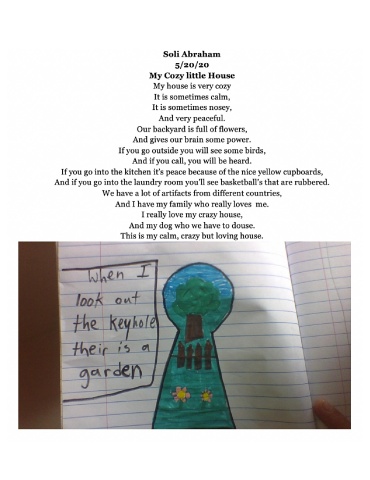 Soli Abraham
5/20/20
My Cozy little House
My house is very cozy
It is sometimes calm,
It is sometimes nosey,
And very peaceful.
Our backyard is full of flowers,
And gives our brain some power.
If you go outside you will see some birds,
And if you call, you will be heard.
If you go into the kitchen it's peace because of the nice yellow cupboards,
And if you go into the laundry room you'll see basketball's that are rubbered.
We have a lot of artifacts from different countries,
And I have my family who really loves  me.
I really love my crazy house,
And my dog who we have to douse.
This is my calm, crazy but loving house.
When I
look out
the keyhole
their is a
garden